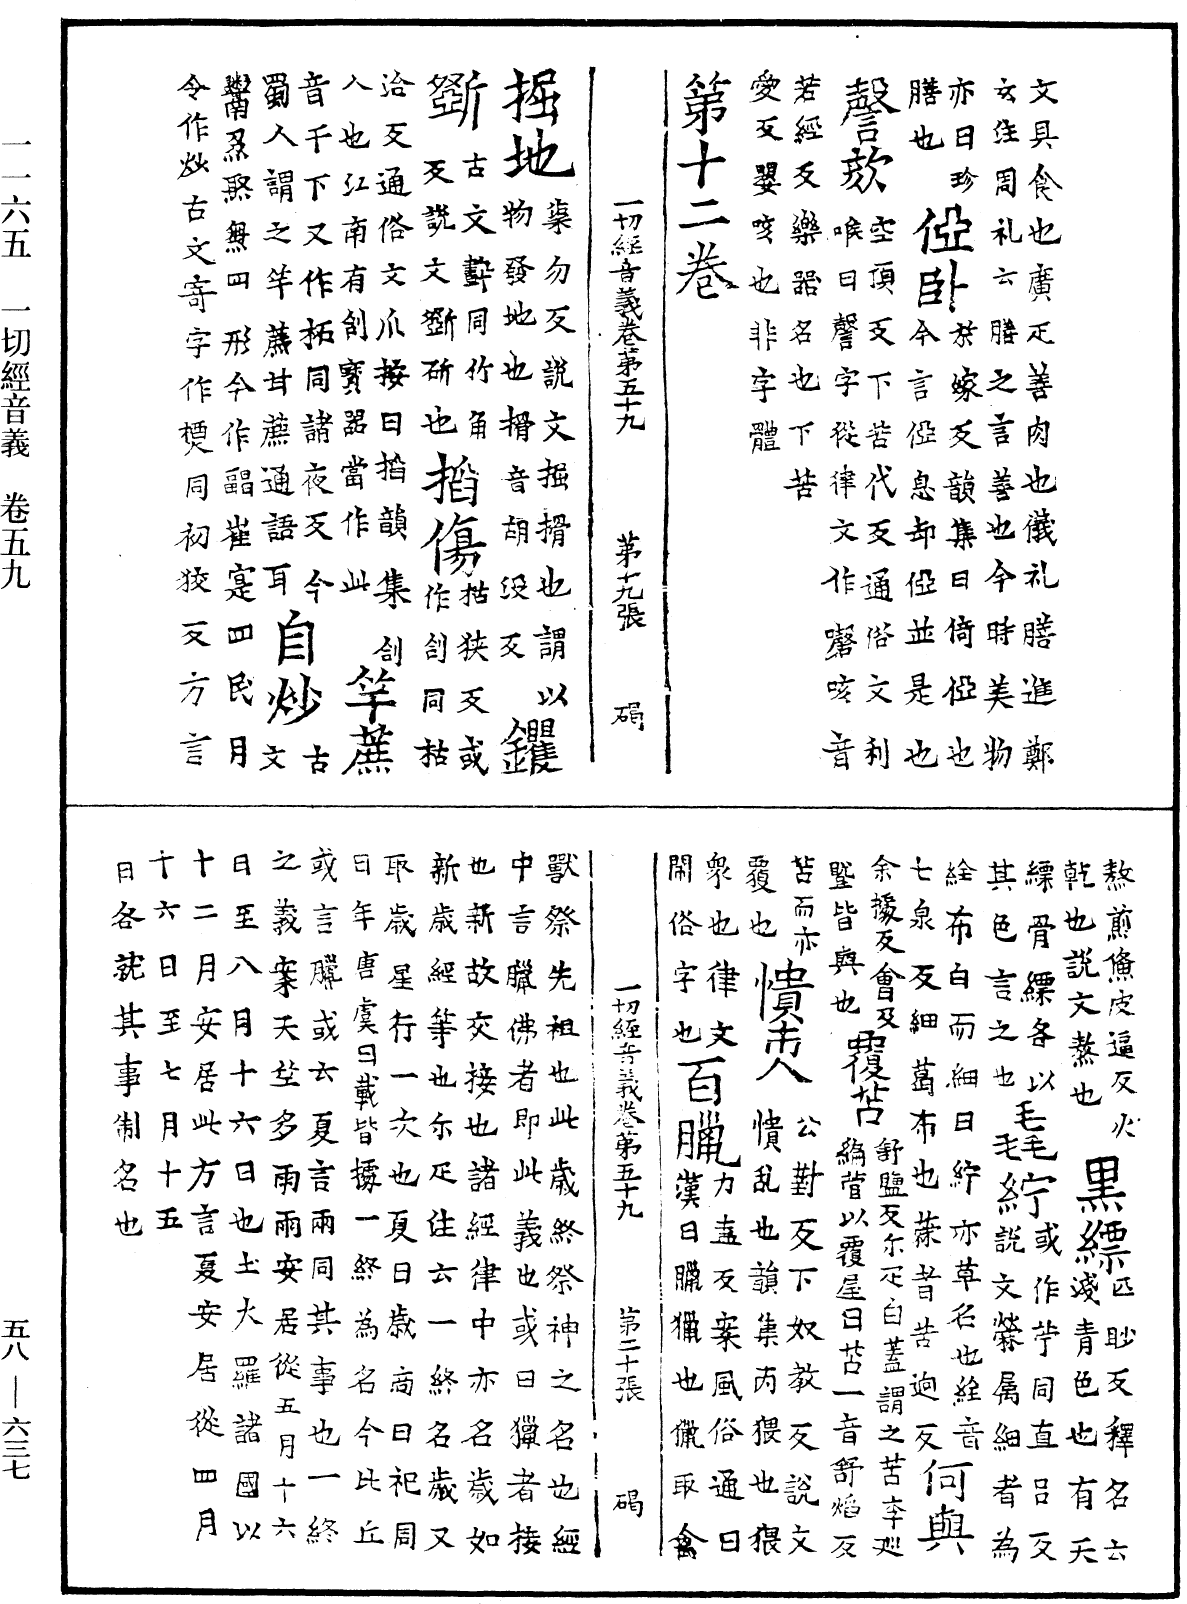 一一六五　一切經音義　卷五九
文具食也廣疋善肉也儀礼膳進鄭
玄注周礼云膳之言善也今時美物
亦曰珍
膳也
俹臥
於嫁反韻集曰倚俹也
今言俹息却俹並是也
謦欬
空頂反下苦代反通俗文利
喉曰謦字從律文作磬咳音
若經反樂器名也下苦
愛反嬰咳也非字體
第十二卷
一切經音義卷第五十九　第十九張　碣
掘地
渠勿反說文掘搰也謂以
物發地也搰音胡沒反
钁
斲
古文㔁同竹角
反說文斲斫也
掐傷
枯狹反或
作㓣同枯
洽反通俗文爪按曰掐韻集㓣
入也江南有㓣竇器當作此
竿蔗
音干下又作柘同諸夜反今
蜀人謂之竿蔗甘蔗通語耳
自炒
古
文
鬻䎡㷅𤋱四形今作䎡崔寔四民月
令作炒古文奇字作㷶同初狡反方言
熬煎
皮逼反火
乾也說文熬也
黑縹
匹眇反釋名云
淺青色也有天
縹骨縹各以
其色言之也
毛毦紵
或作苧同直呂反
說文縈属細者為
絟布白而細曰紵亦草名也絟音
七泉反細葛布也檾音苦迥反
何與
余據反會及
曁皆與也
覆苫
舒鹽反尒疋白蓋謂之苫李巡
編菅以覆屋曰苫一音舒焰反
苫而亦
覆也
憒𠆴
公對反下奴教反說文
憒乱也韻集丙猥也猥
衆也律文
閙俗字也
百臘
力盍反案風俗通曰
漢曰臘獵也獵取禽
一切經音義卷第五十九　第二十張　碣
獸祭先祖也此歲終祭神之名也經
中言臘佛者即此義也或曰獵者接
也新故交接也諸經律中亦名歲如
新歲經等也尒疋注云一終名歲又
取歲星行一次也夏曰歲商曰祀周
曰年唐虞曰載皆據一終為名今比丘
或言臘或云夏言雨同其事也一終
之義案天竺多雨雨安居從五月十六
日至八月十六日也土火羅諸國以
十二月安居此方言夏安居從四月
十六日至七月十五
日各就其事制名也
五八—六三七